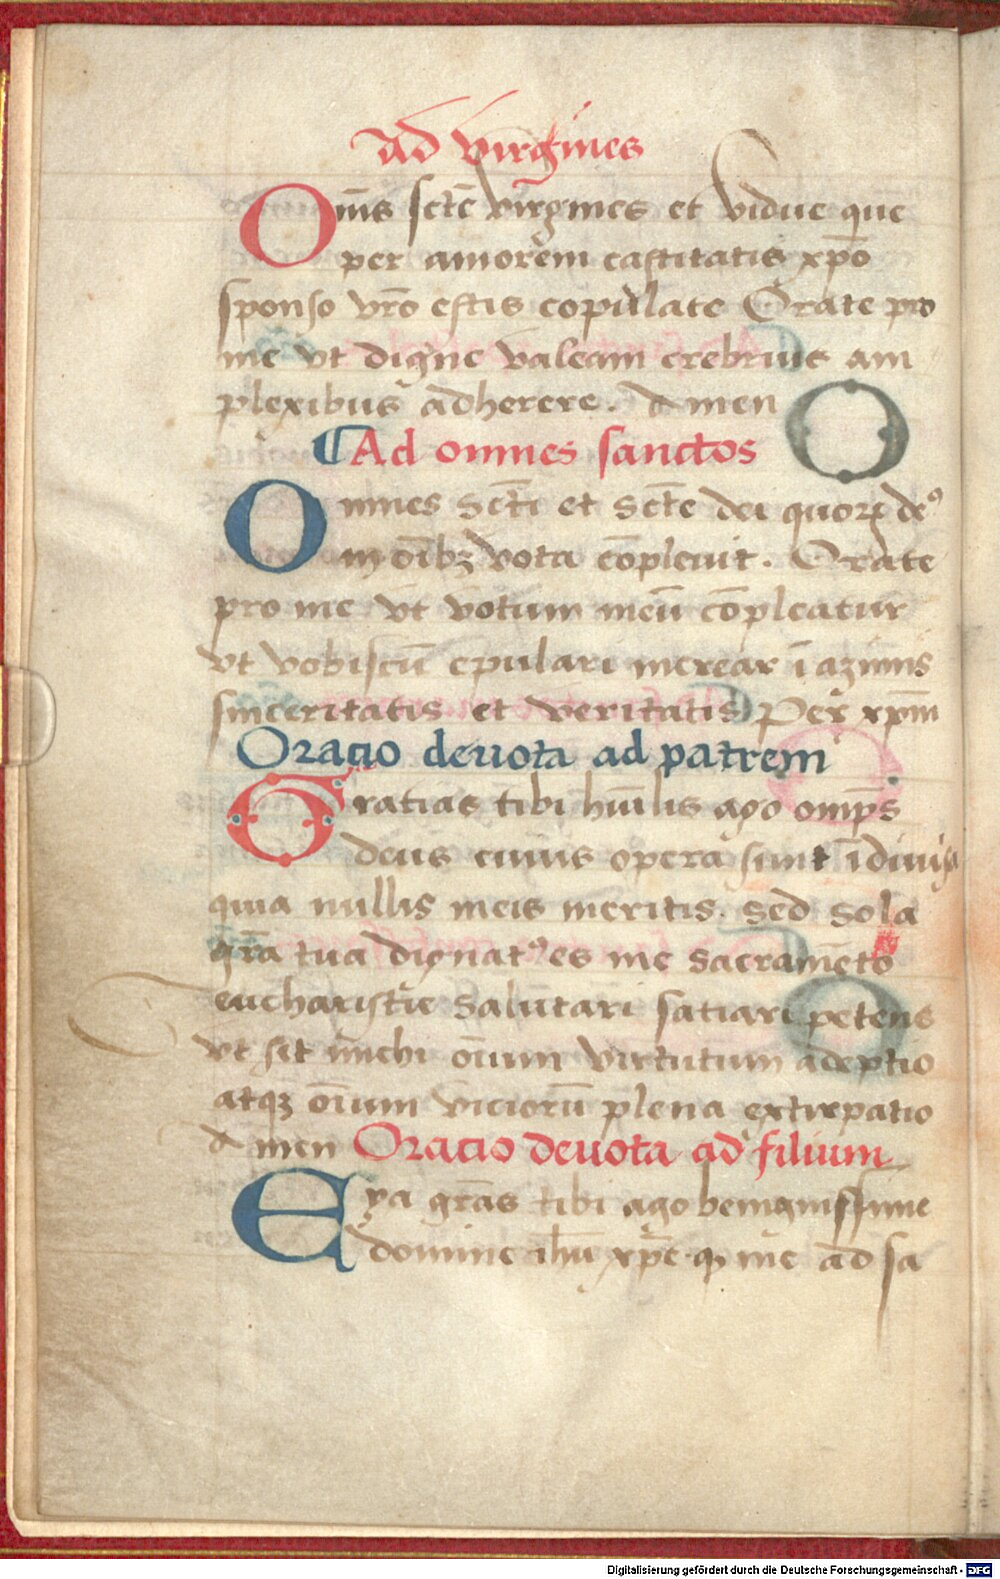 Ad virgines
Om̄s sctē virgines et vidue que
per amorem castitatis xp̄o
sponso vr̄o estis copulate Orate pro
me vt digne valeam crebrius am
plexibus adherere. Amen
¶Ad omnes sanctos
Omnes Sctī et Sctē dei quorꝝ deꝰ
in oībꝫ vota cōpleuit. Orate
pro me vt votum meū cōpleatur
vt vobiscū epulari merear ī azimis
sinceritatis et veritatis Per xp̄m
Oracio deuota ad patrem
Gratias tibi hūilis ago omp̄s
deus cuius opera sunt īdiuisa
quia nullis meis meritis. Sed Sola
grā tua dignatꝰ es me Sacramēto
eucharistie Salutari satiari petens
vt sit michi oīum virtutum adeptio
atqꝫ oīum viciorū plena extirpatio
Amen Oracio deuota ad filium
Eya grās tibi ago benignissime
domine ihū xp̄e. qꝫ me ad sa
Digitalisierung gefördert durch die Deutsche Forschungsgemeinschaft - DFG